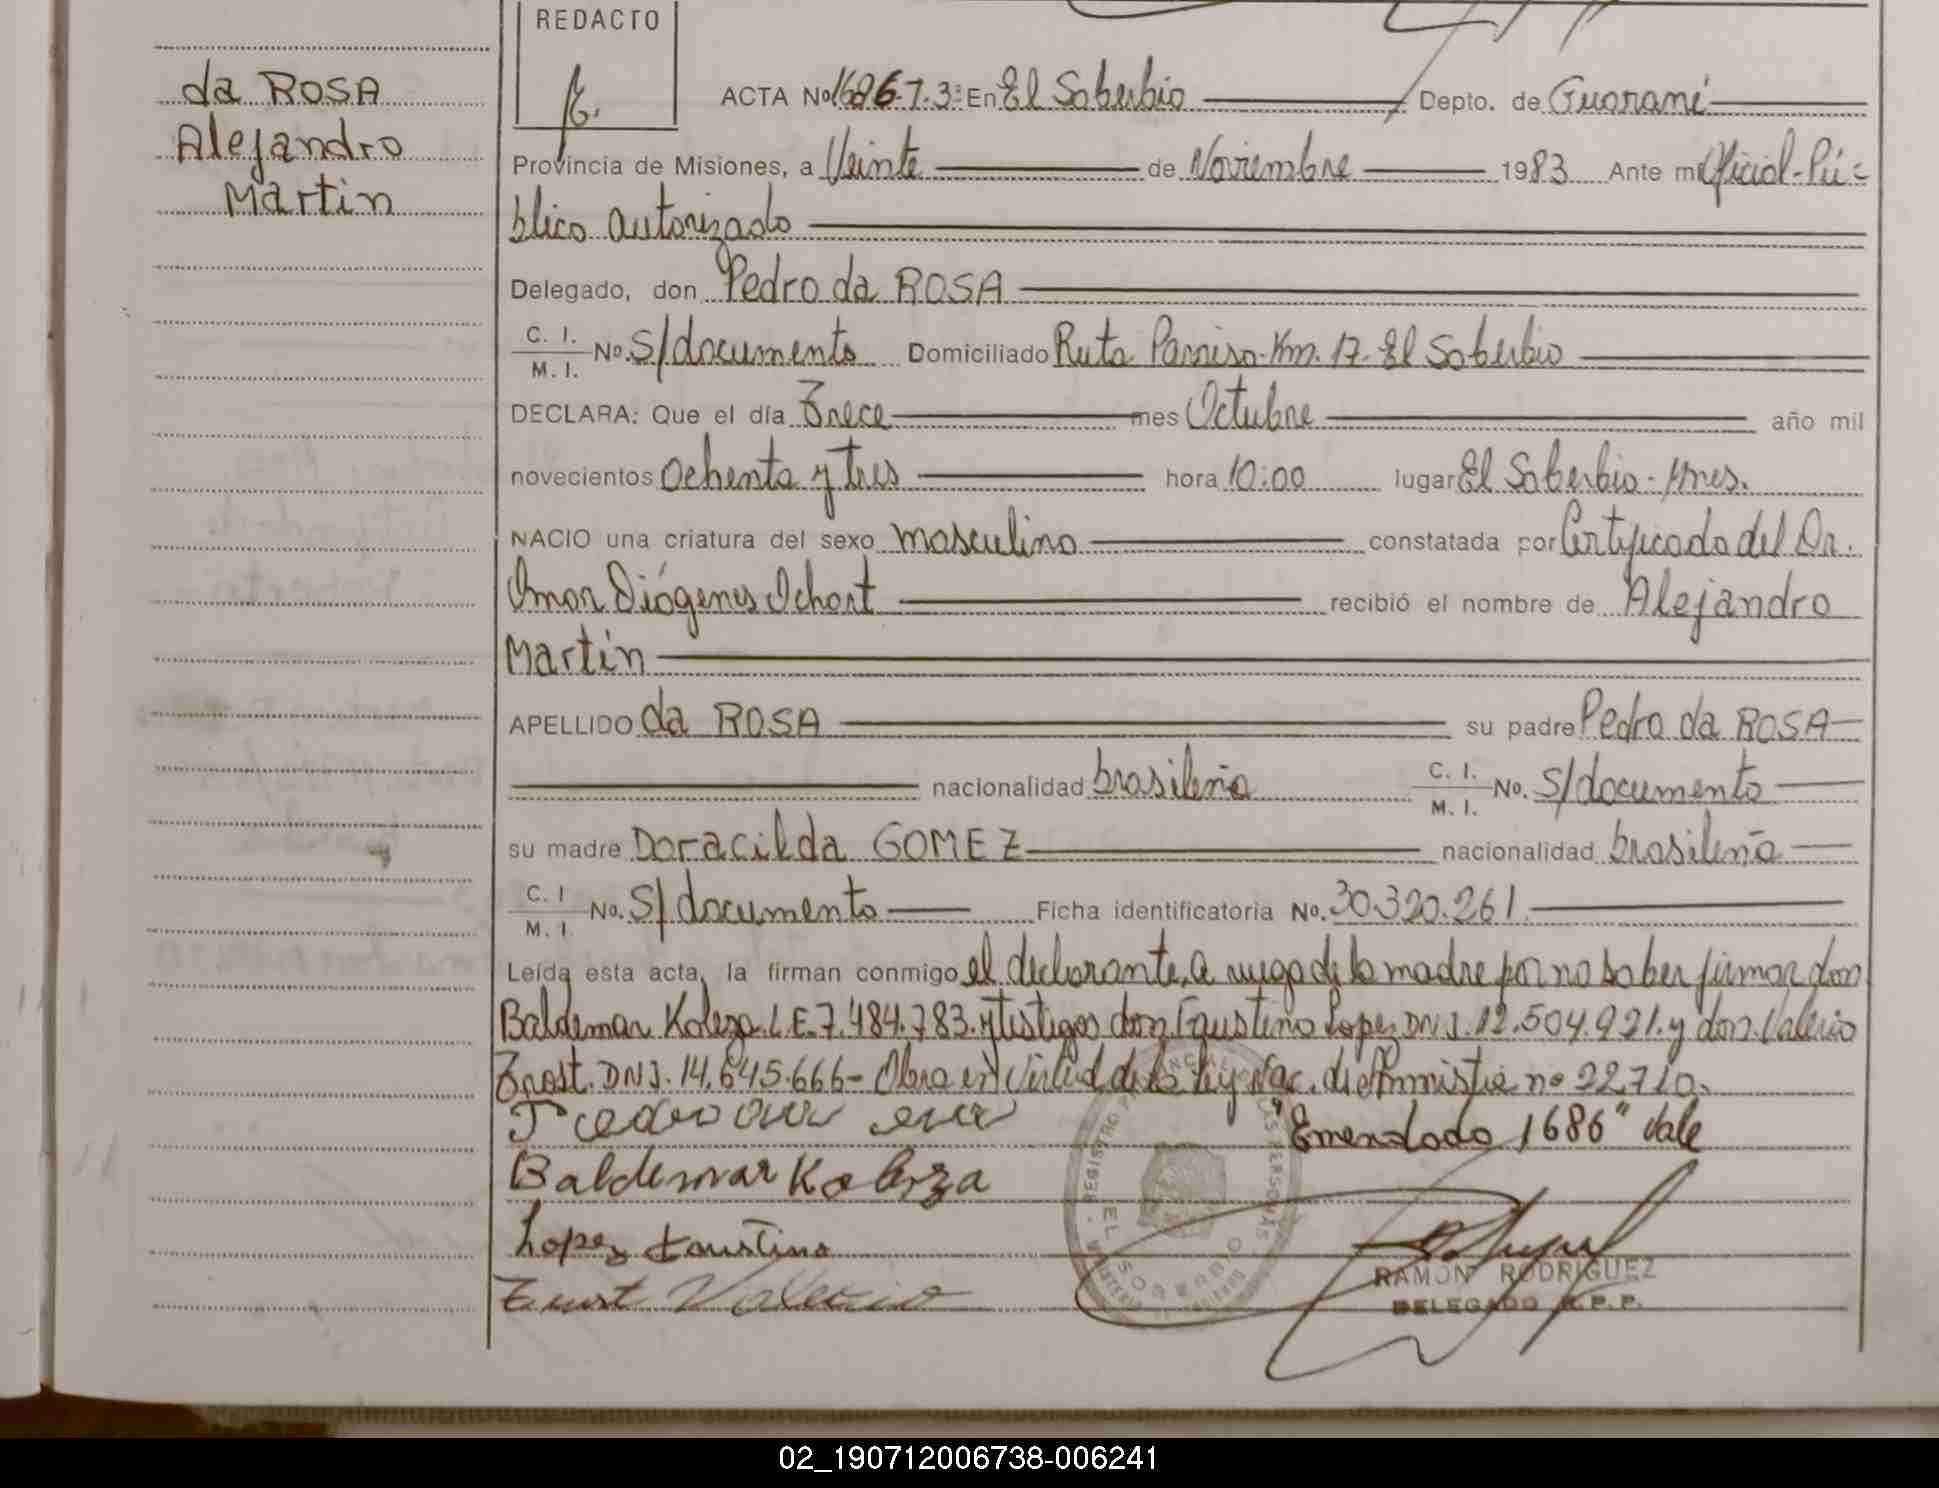 REDACTO
da ROSA
Alejandro
Martin
ACTA No 1686.T.3ª En El Soberbio Depto. de Guaraní
Provincia de Misiones, a Veinte de Noviembre 1983 Ante mi Oficial-Pú-
blico autorizado
Delegado, don Pedro da ROSA
C. I.
M. I. No. S/documento Domiciliado Ruta Paraiso-Km. 17-El Soberbio
DECLARA: Que el día Trece mes Octubre año mil
novecientos ochenta y tres hora 10:00 lugar El Soberbio-Mnes.
NACIO una criatura del sexo masculino constatada por Certificado del Dr.
Omar Diógenes Ichart recibió el nombre de Alejandro
Martín
APELLIDO da ROSA su padre Pedro da ROSA
nacionalidad brasileña C. I.
M. I. No. S/documento
su madre Doracilda GOMEZ nacionalidad brasileña
C. I
M. I. No. S/documento Ficha identificatoria No. 30.320.261.
Leída esta acta, la firman conmigo el declarante, a ruego de la madre por no saber firmar don
Baldemar Koleza L.E. 7.484.783. y testigos don Faustino Lopez DNI. 12.504.921. y don Valerio
DNI. 14.645.666- Obra en virtud de la ley Nac. de Amnistia nº 22.710.
"Emendado 1686" Vale
Baldemar
Lopez Faustino
Valerio
REGISTRO
EL SOBERBIO
RAMON RODRIGUEZ
DELEGADO R.P.P.
02_190712006738-006241